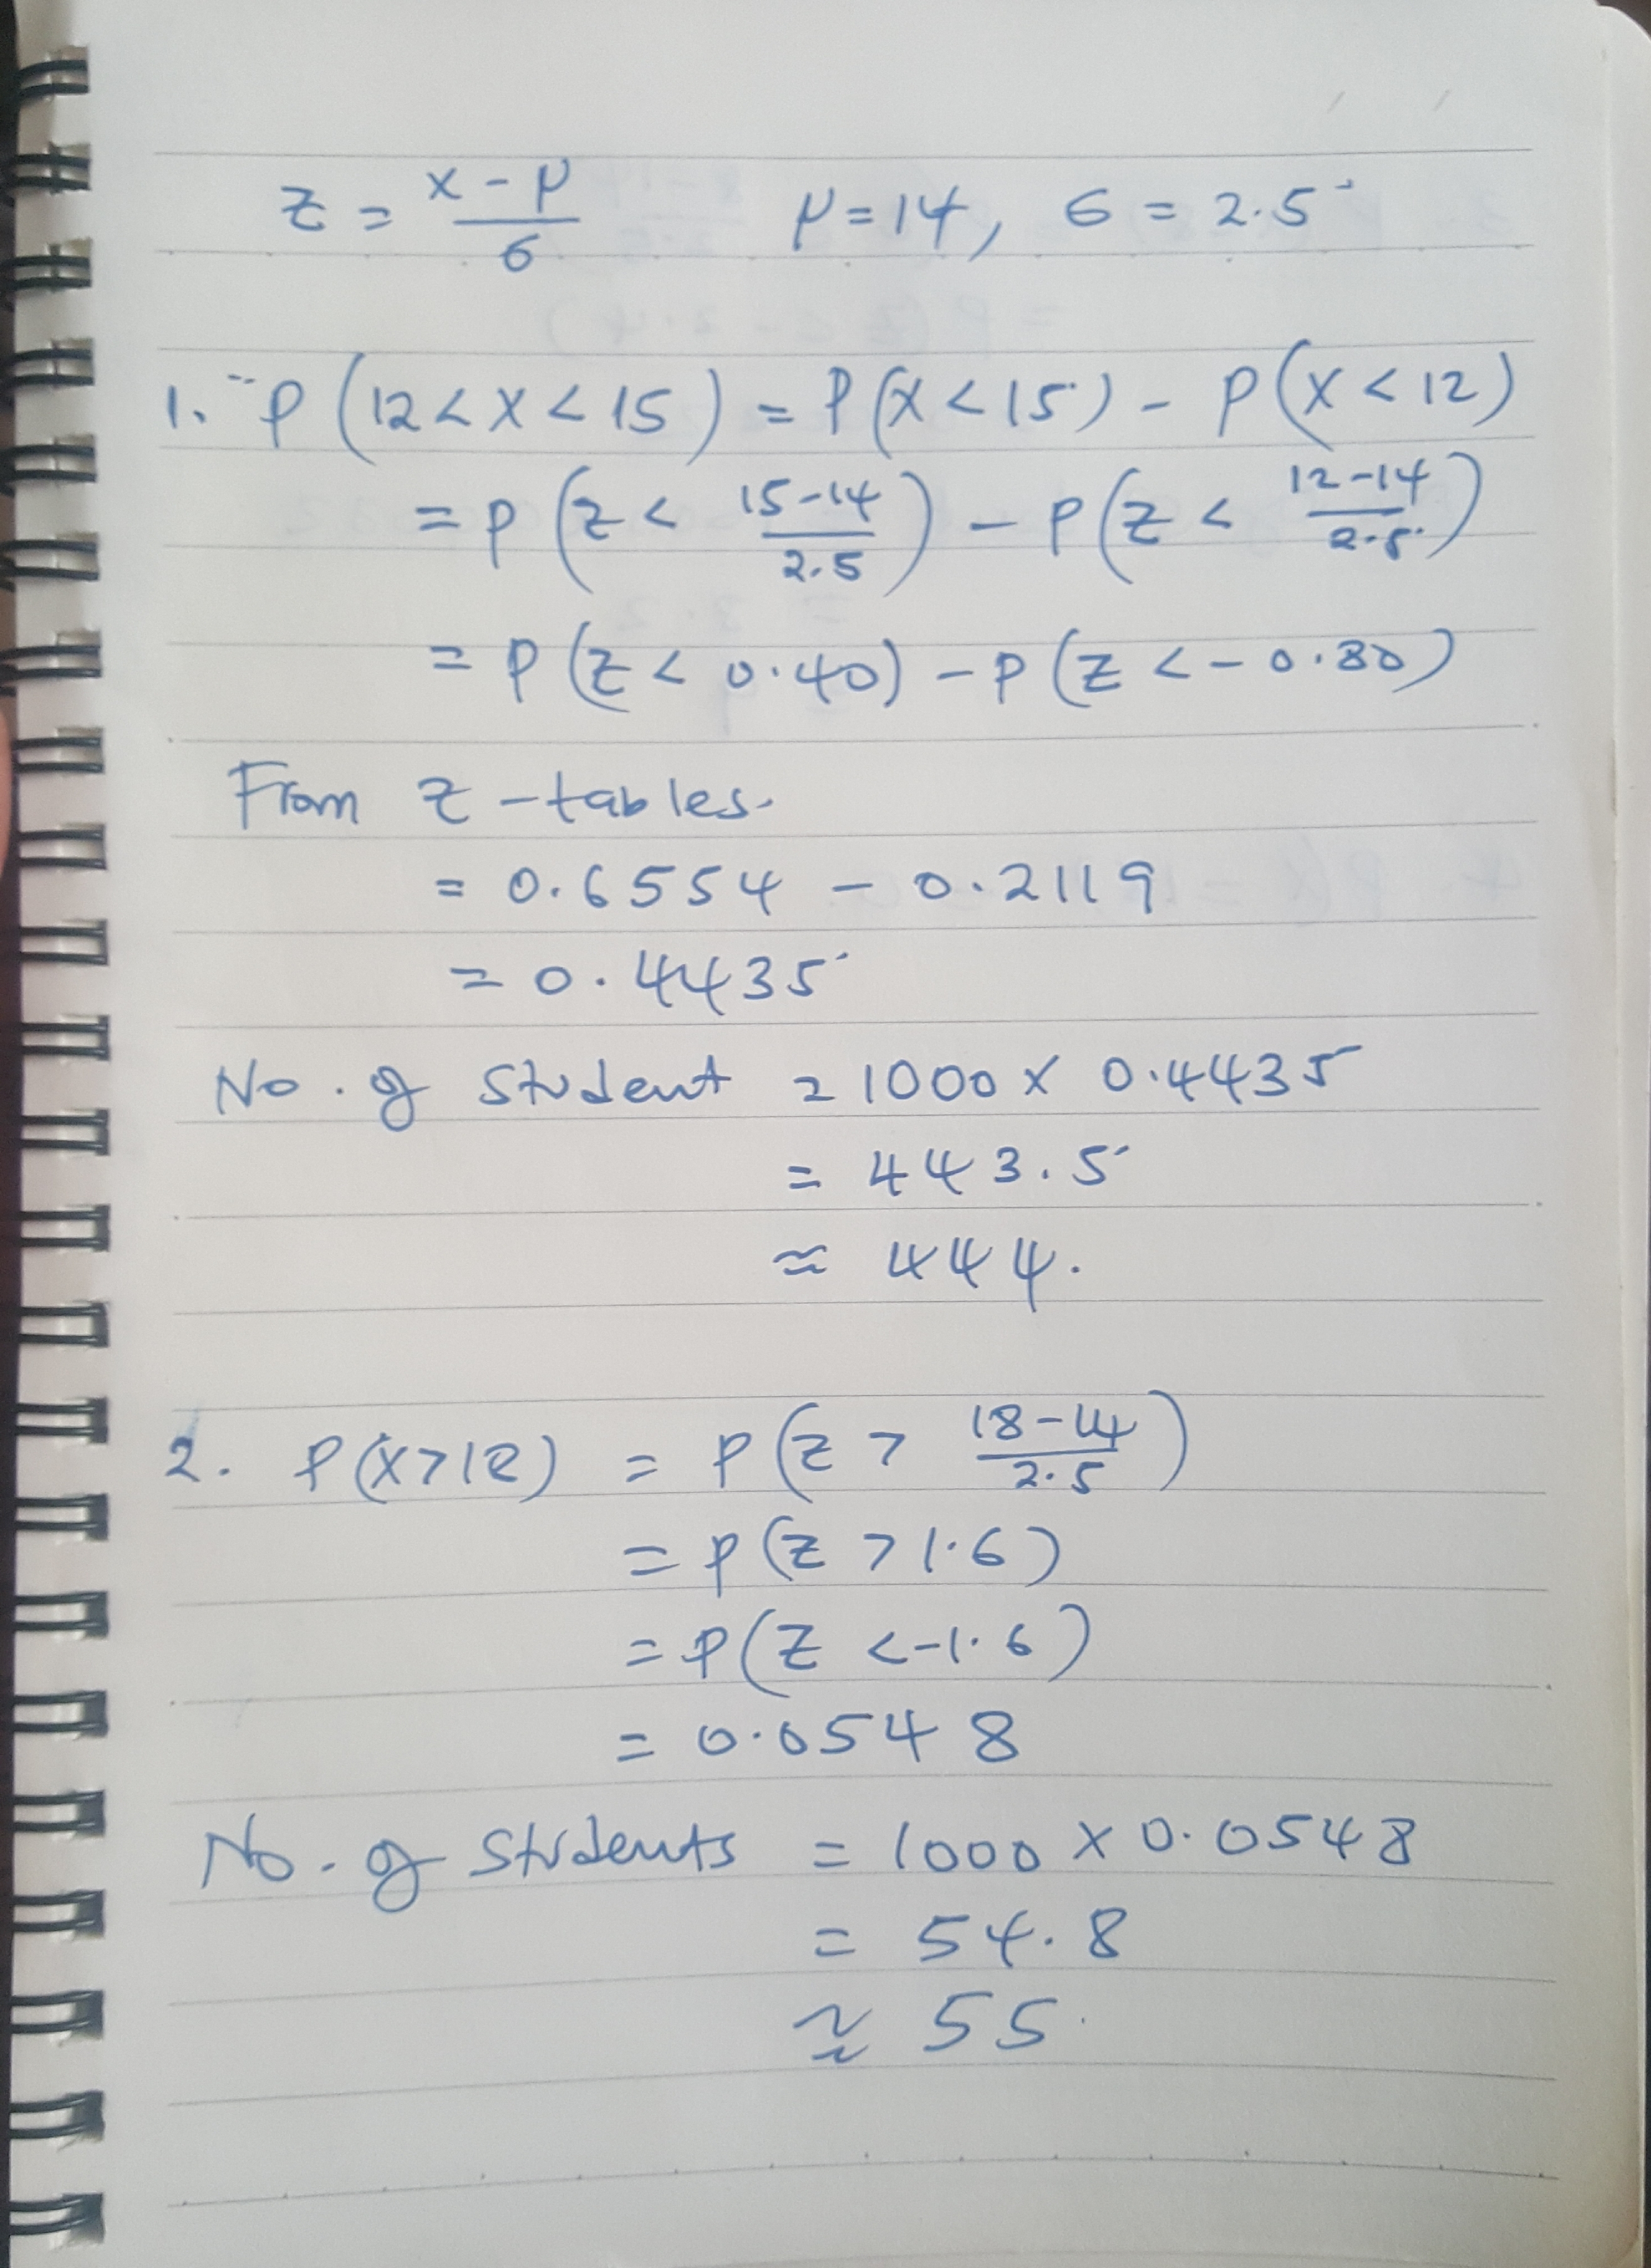 z = (x - μ)/6    μ = 14, 6 = 2.5
1. P(12 < X < 15) = P(X < 15) - P(X < 12)
= P(z < (15-14)/2.5) - P(z < (12-14)/2.5)
= P(z < 0.40) - P(z < -0.80)
From z-tables.
= 0.6554 - 0.2119
= 0.4435
No. of Student = 1000 x 0.4435
= 443.5
≈ 444.
2. P(X > 18) = P(z > (18-14)/2.5)
= P(z > 1.6)
= P(z < -1.6)
= 0.0548
No. of Students = 1000 x 0.0548
= 54.8
≈ 55.